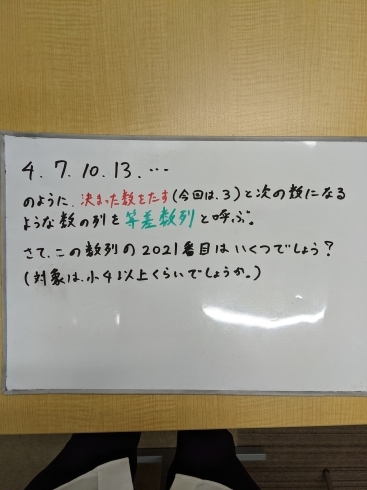 4.7.10.13.…
のように、決まった数をたす(今回は、3)と次の数になる
ような数の列を等差数列と呼ぶ。
さて、この数列の2021番目はいくつでしょう？
(対象は、小4以上くらいでしょうか。)